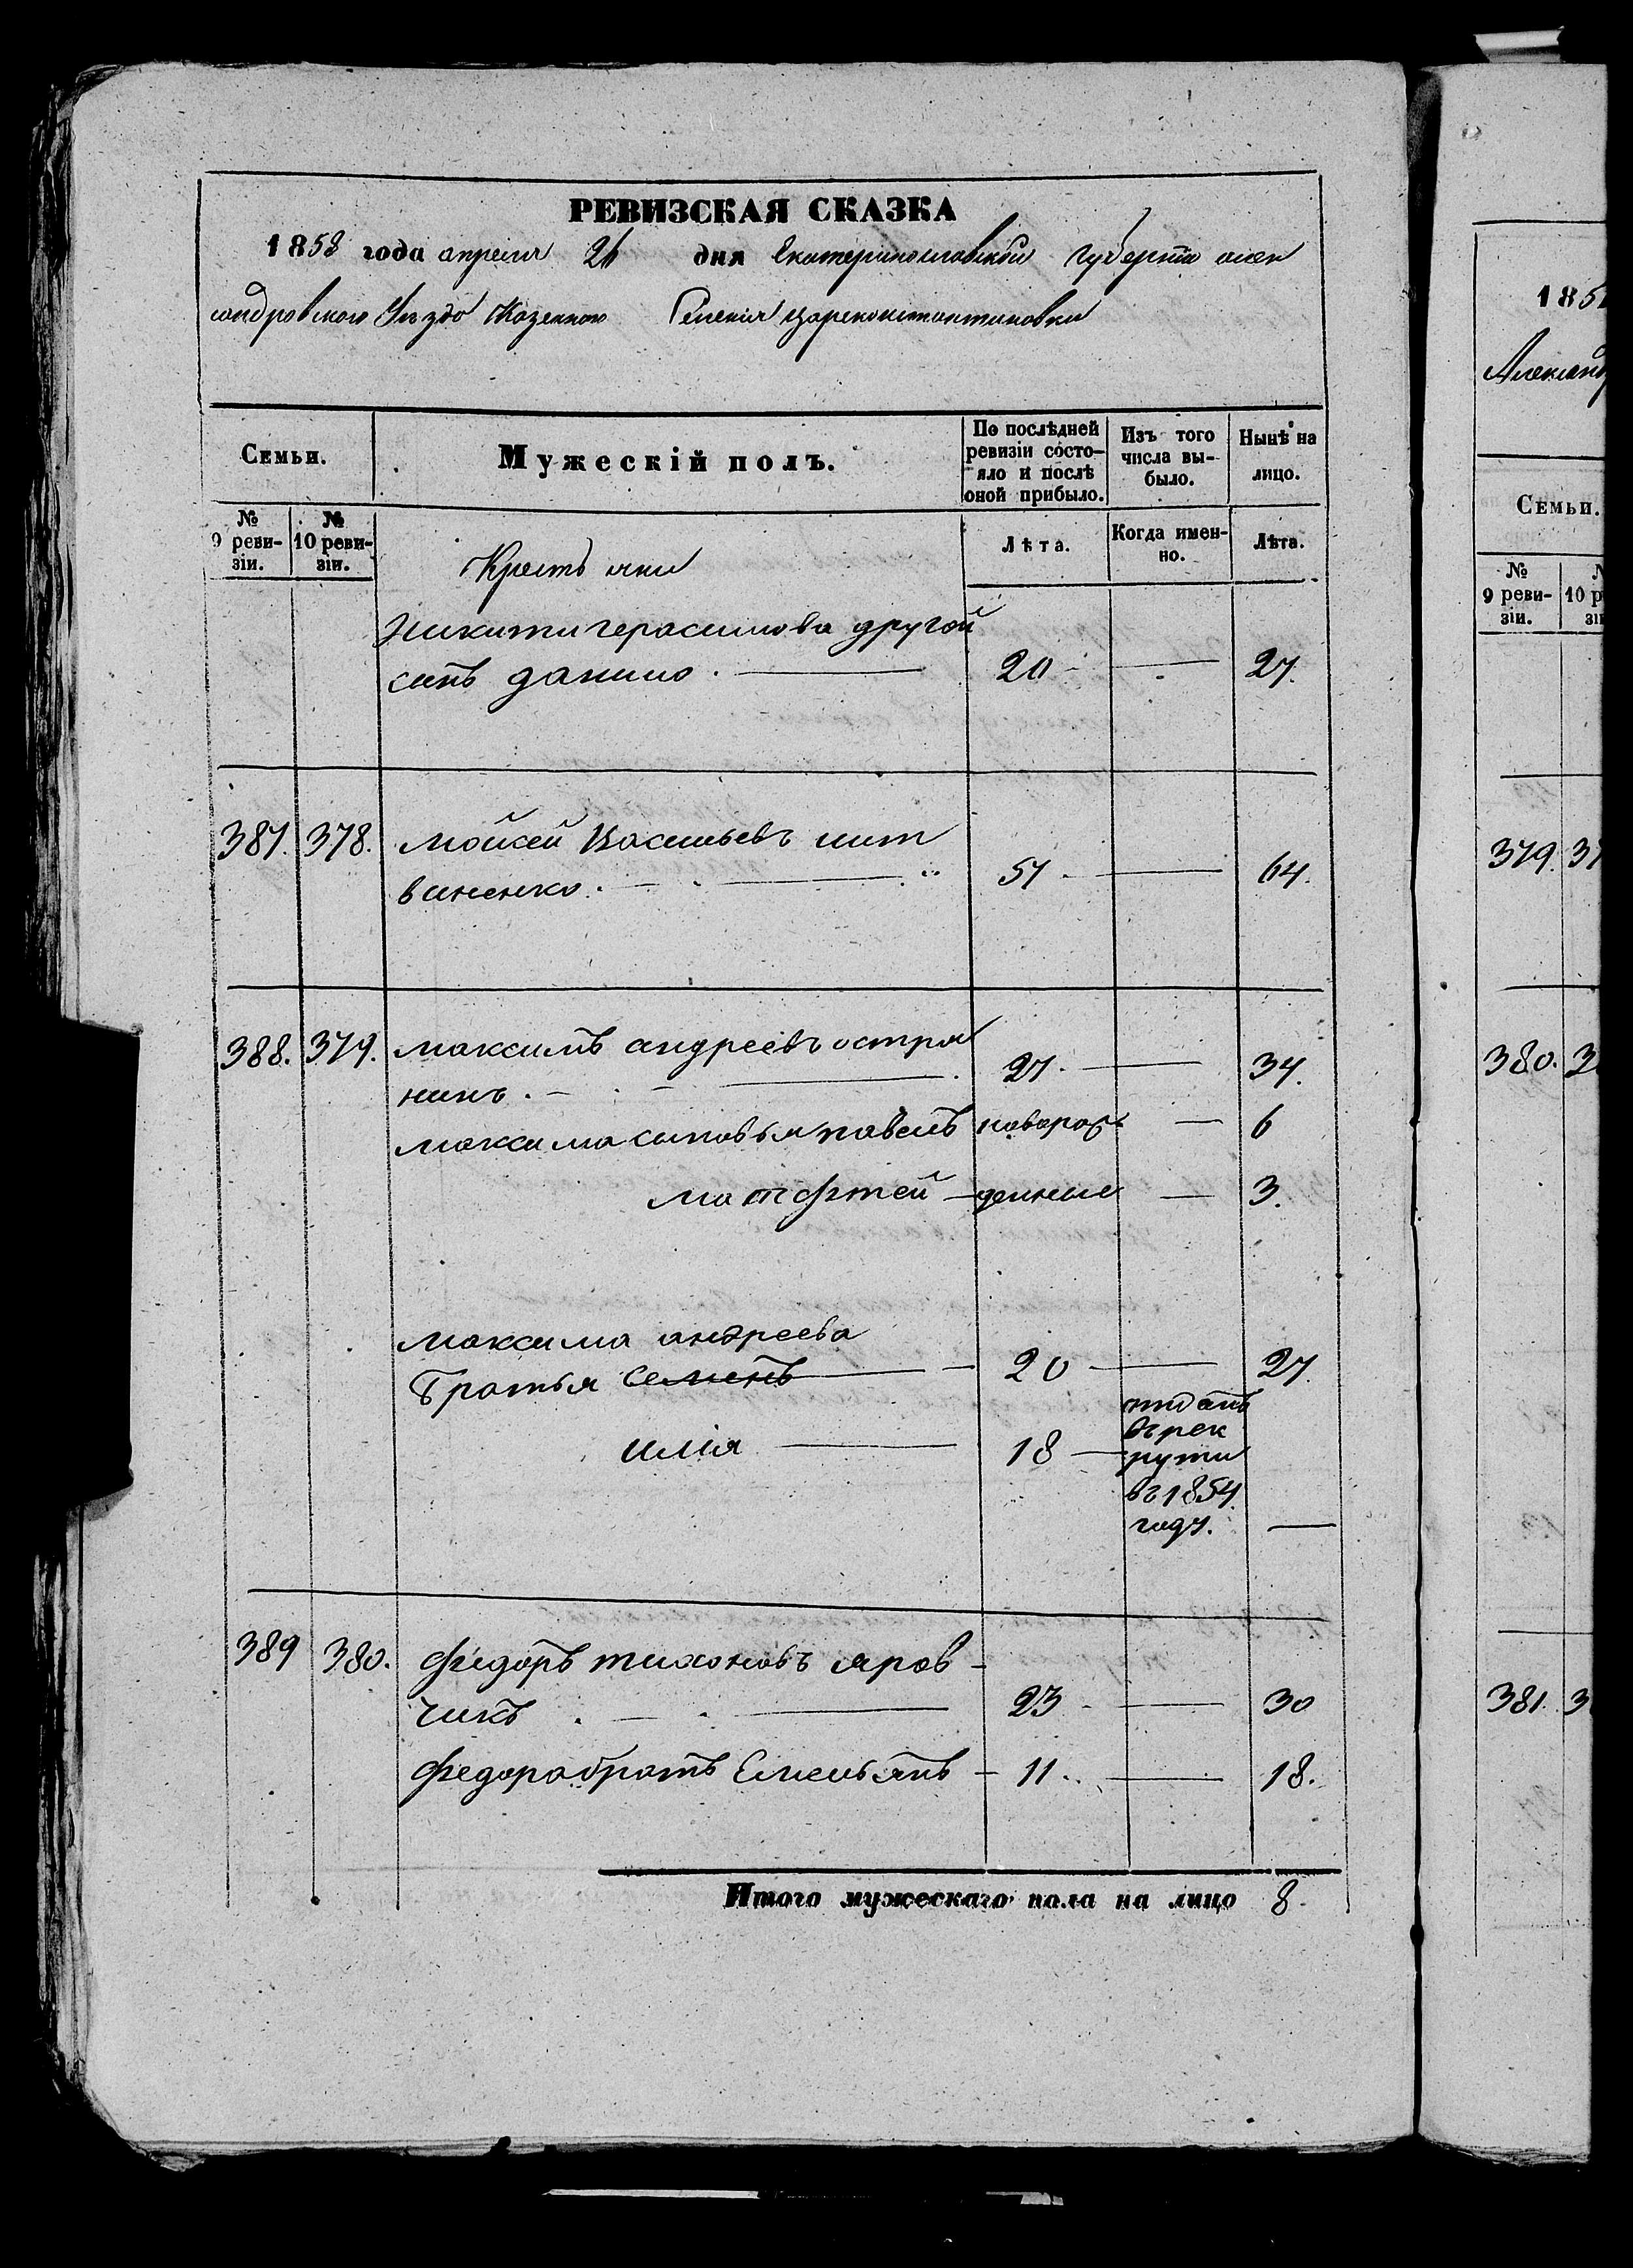 РЕВИЗСКАЯ СКАЗКА
1858 года апреля 26 дня Екатеринославской губернiи алек
сандровского Уезда Казенного Селенiя Цареконстантиновки
Семьи.
Мужескій полъ.
По послѣдней ревизіи состо-
яло и послѣ оной прибыло.
Изъ того числа вы-
было.
Нынѣ на лицо.
№ 9 реви-
зіи.
№ 10 реви-
зіи.
Лѣта.
Когда имен-
но.
Лѣта.
Крестьяни
Никити герасимова другой
синъ данило 20 27.
387. 378. мойсей Васильевъ лит
виненко. 57 64.
388. 379. максимъ андреевъ остря
нинъ. 27. 34.
максима синовья павелъ новорож 6
матфтей денние 3.
максима андреева
братья Семенъ 20 27.
илiя 18 отданъ
въ рек
рути
въ 1854
году.
389 380. федоръ тихоновъ яров-
чикъ 23 30
федора братъ Емельянъ 11. 18.
Итого мужескаго пола на лицо 8.
185
Александ
Семьи.
№ 9 реви-
зіи.
10 р
зі
379. 37
380. 3
381. 3